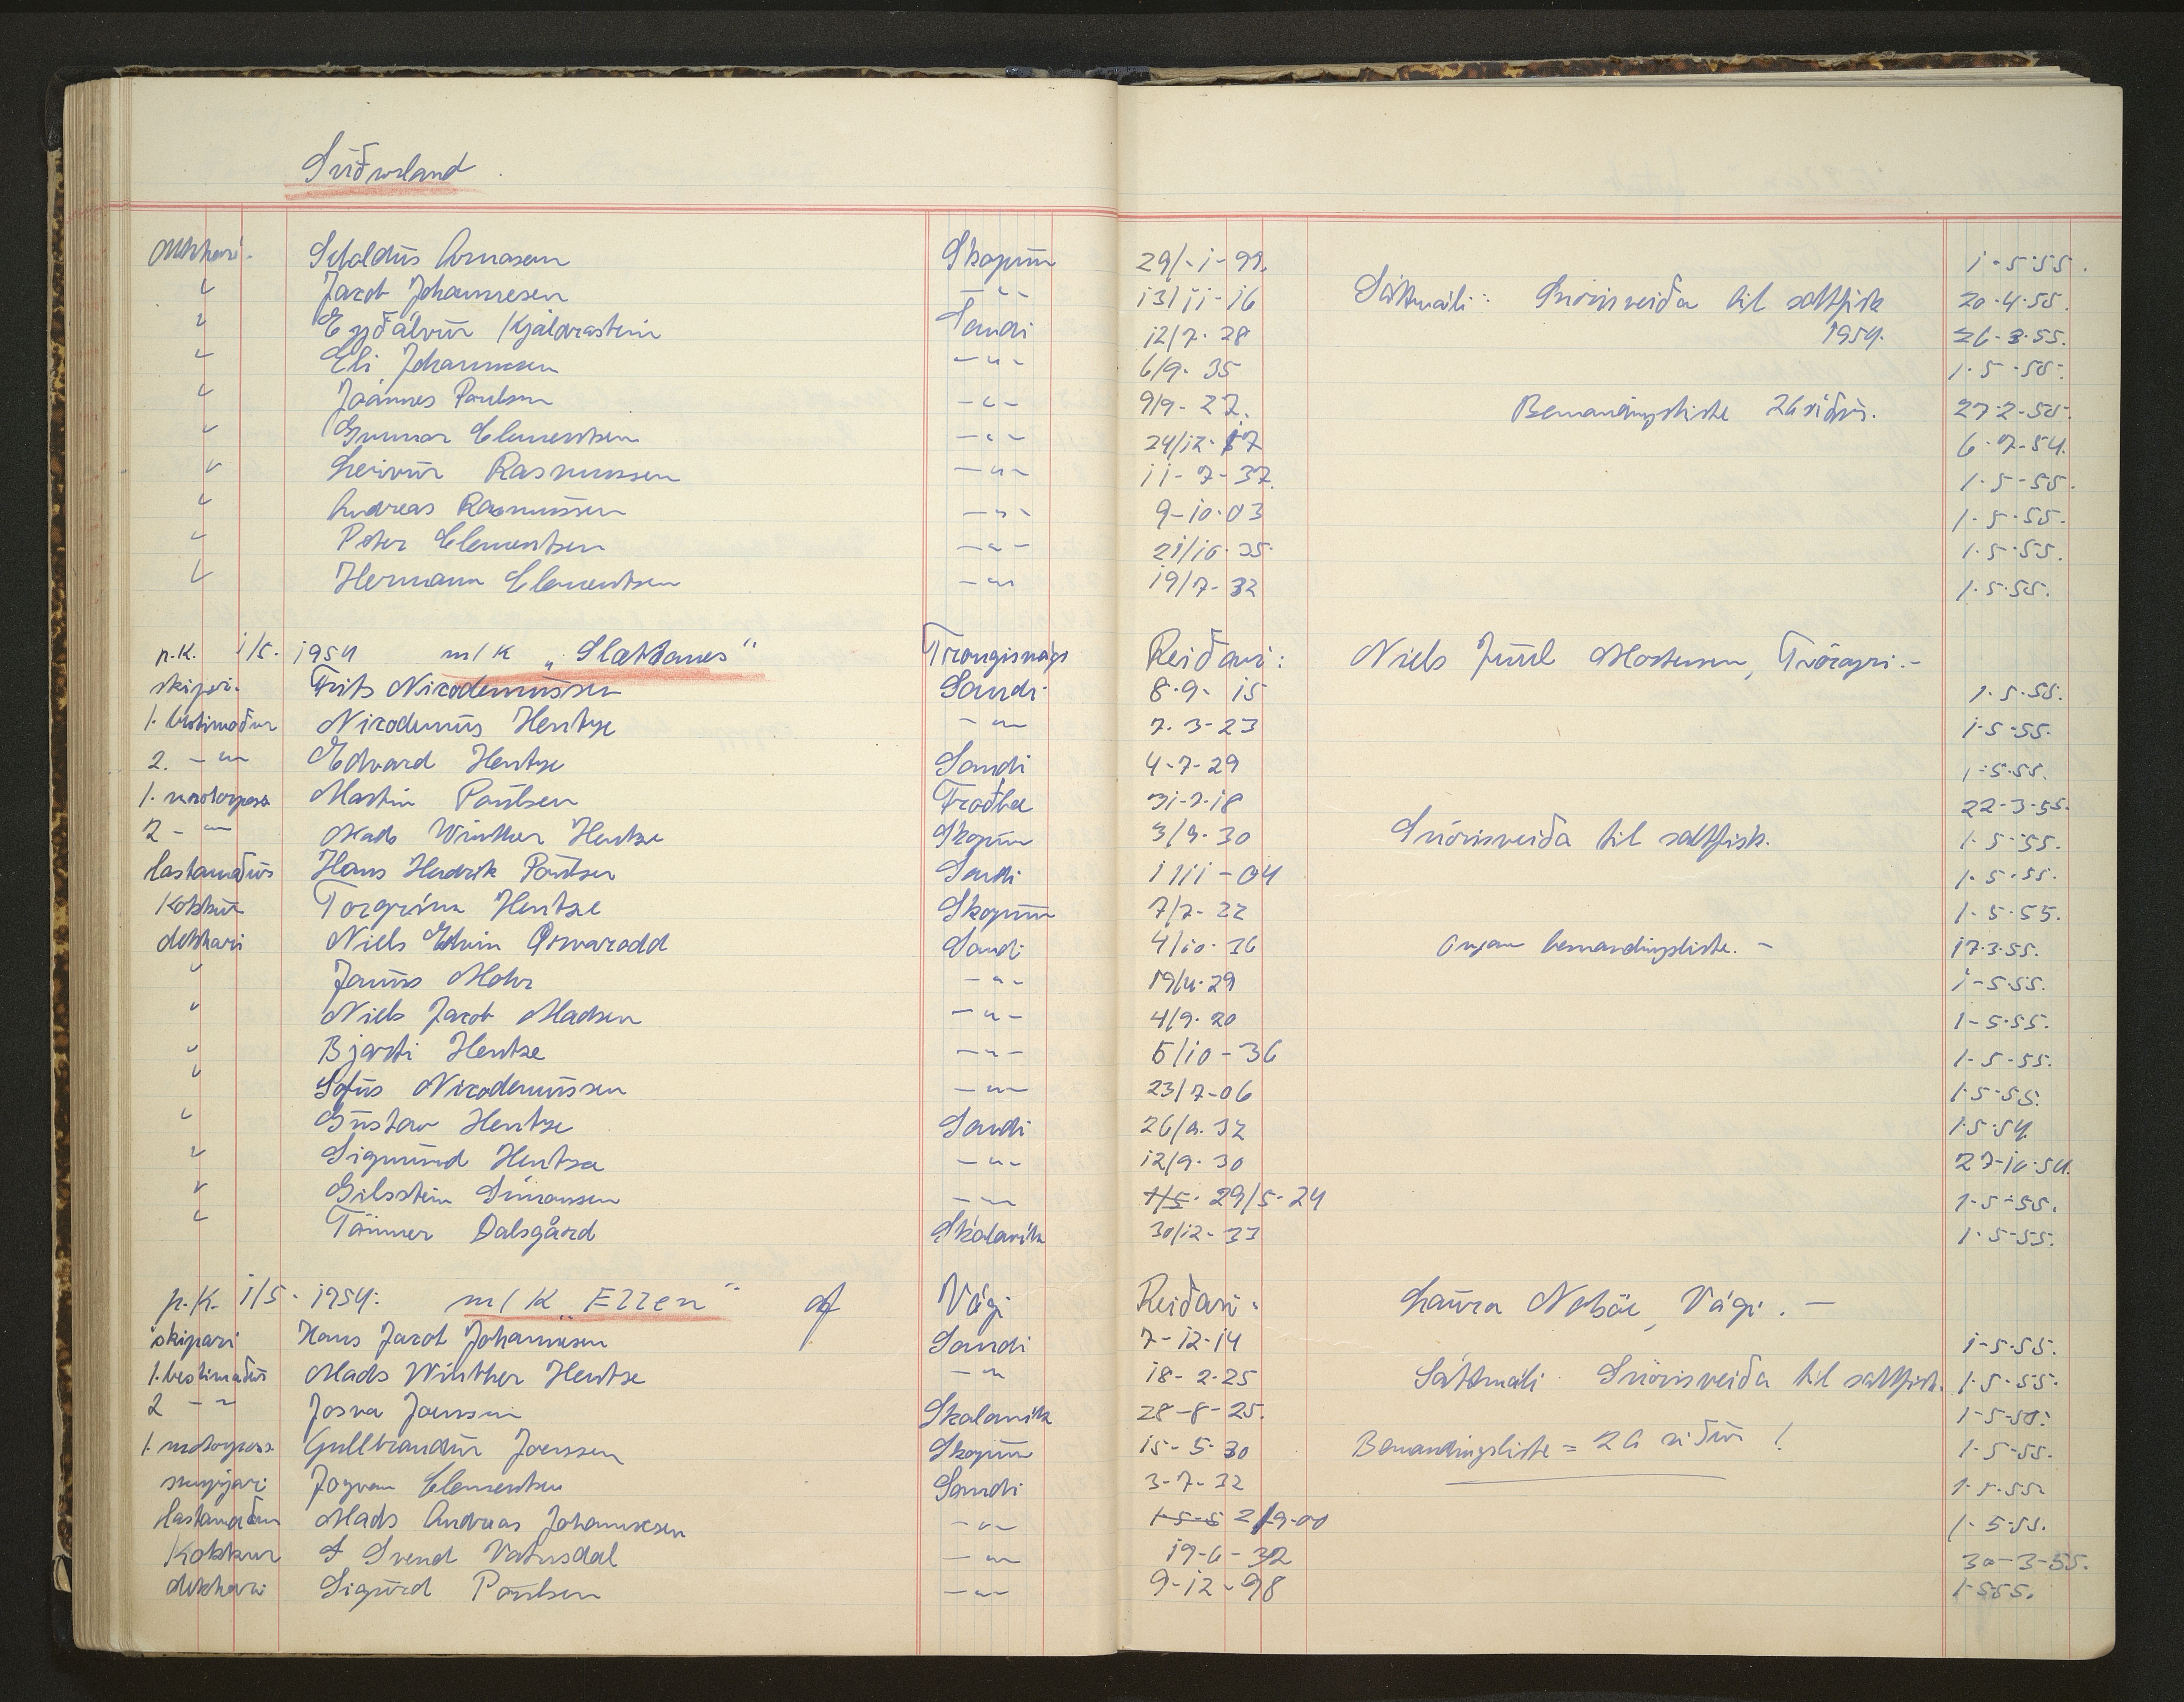 Suðurland
dekkari. Sebaldus Arnason Skopun 29/-1-99. 1-5-55.
" Jacob Johannesen -"- 13/11-16 Sáttmáli: Snørisveiða til saltfisk 20-4-55.
" Eyðálvur Kjalarstein Sandi 12/7-28 1954. 26-3-55.
" Eli Johannesen -"- 6/9-35 1-5-55.
" Jóannes Poulsen -"- 9/9-27. Bemandingsliste 26 síðu. 27-2-55.
" Gunnar Clementsen -"- 24/12-17 6-7-54.
" Leivur Rasmussen -"- 11-7-37. 1-5-55.
" Andreas Rasmussen -"- 9-10-03 1-5-55.
" Peter Clementsen -"- 21/10-35 1-5-55.
" Hermann Clementsen -"- 19/7-32 1-5-55.
p.k. 1/5. 1954 m/k „Slættanes" Trongisvágs Reiðari: Niels Juul Mortensen, Tvøroyri.-
skipari. Frits Nicodemussen Sandi 8-9-15 1-5-55.
1. bestimaður Nicodemus Hentze -"- 7-3-23 1-5-55.
2. -"- Edvard Hentze Sandi 4-7-29 1-5-55.
1. motorpass Martin Poulsen Froðba 31-7-18 22-3-55.
2 -"- Mads Winther Hentze Skopun 3/9-30 Snørisveiða til saltfisk. 1-5-55.
lastamaður Hans Hendrik Poulsen Sandi 1/11-04 1-5-55.
Kokkur Torgrim Hentze Skopun 7/7-22 1-5-55.
dekkari Niels Edvin Qvivarodd Sandi 4/10-36 Ongan bemandingsliste. - 17-3-55.
" Janus Mohr -"- 19/4-29 1-5-55.
" Niels Jacob Madsen -"- 4/9-20 1-5-55.
" Bjarti Hentze -"- 5/10-36 1-5-55.
" Sofus Nicodemussen -"- 23/7-06 1-5-55.
" Gustav Hentze Sandi 26/9-32 1-5-54.
" Sigmund Hentze -"- 12/9-30 27-10-54.
" Gilsstein Simonsen -"- 1/5. 29/5-24 1-5-55.
" Tummer Dalsgård Skálavík 30/12-33 1-5-55.
p.k. 1/5. 1954. m/k „Ellen" af Vági Reiðari: Laura Nolsöe, Vági. -
skipari Hans Jacob Johannesen Sandi 7-12-14 1-5-55.
1. bestimaður Mads Winther Hentze -"- 18-2-25 Sáttmáli Snørisveiða til saltfisk. 1-5-55.
2 -"- Josva Joensen Skálavík 28-8-25. 1-5-55.
1. motorpass Gullbrandur Joensen Skopun 15-5-30 Bemandingsliste = 26 síðu ! 1-5-55.
smyrjari Jógvan Clementsen Sandi 3-7-32 1-5-55.
lastamaður Mads Andreas Johannesen -"- 1-5-5 2/9-00 1-5-55.
Kokkur S Svend Vatnsdal -"- 19-6-32 30-3-55.
dekkari Sigurd Poulsen -"- 9-12-98 1-5-55.